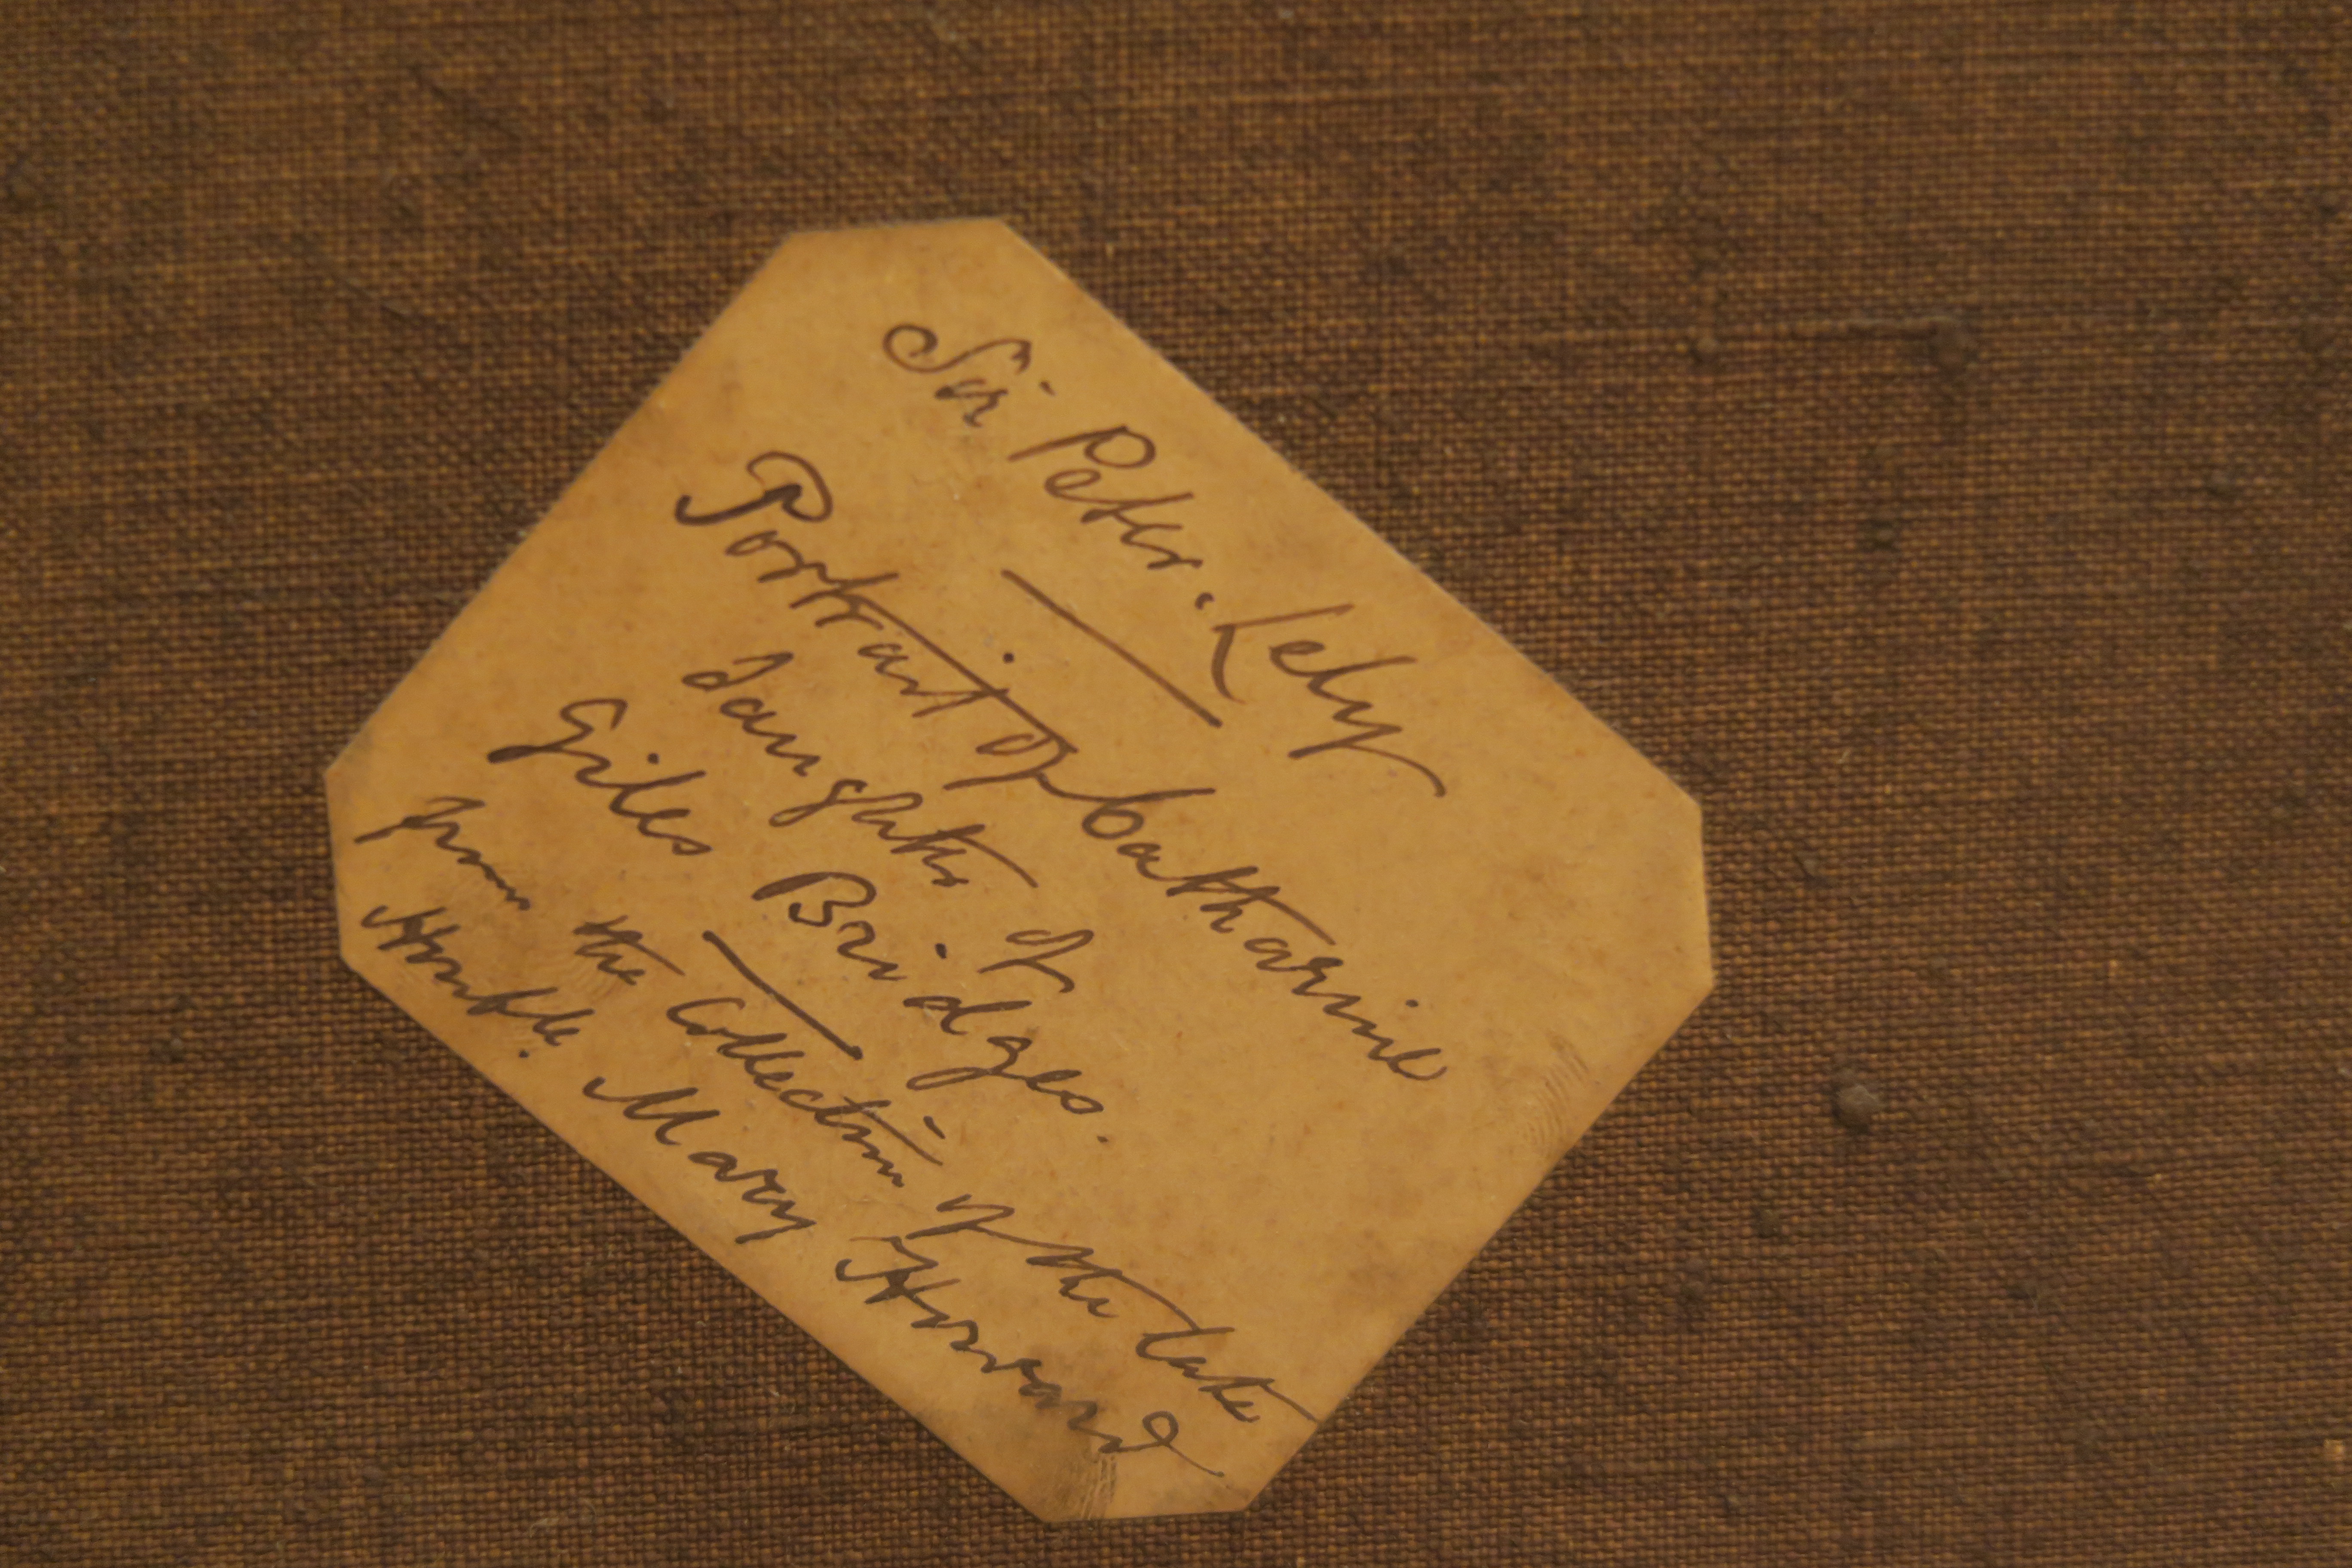 Sir Peter. Lely
Portrait of Catharine
daughter of
Giles Bridges.
from the Collection of the late
Honble. Mary Howard